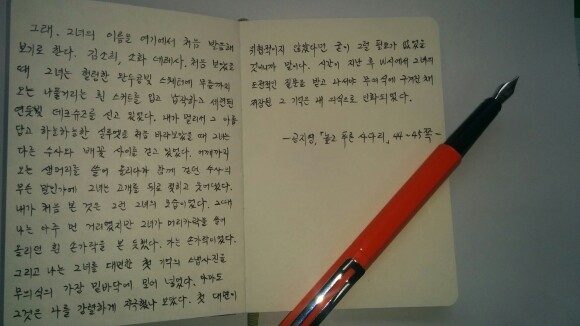 그래. 그녀의 이름을 여기에서 처음 발음해
보기로 한다. 김소희, 소화 데레사. 처음 보았을
때 그녀는 헐렁한 완두콩빛 스웨터에 무릎까지
오는 나풀거리는 흰 스커트를 입고 납작하고 세련된
연둣빛 데크슈즈를 신고 있었다. 내가 멀리서 그 아름
답고 하늘하늘한 실루엣을 처음 바라보았을 때 그는
다른 수사와 배꽃 사이를 걷고 있었다. 어깨까지
오는 생머리는 쓸어 올리다가 함께 걷던 수사의
무슨 말인가에 그녀는 고개를 뒤로 젖히고 웃어댔다.
내가 처음 본 것은 그런 그녀의 모습이었다. 그때
나는 아주 먼 거리였지만 그녀가 머리카락을 쓸어
올리던 흰 손가락을 본 듯했다. 가는 손가락이었다.
그리고 나는 그녀를 대면한 첫 기억의 스냅사진을
무의식의 가장 밑바닥에 밀어 넣었다. 아마도
그것은 나를 강렬하게 자극했나 보았다. 첫 대면이
위협적이지 않았다면 굳이 그럴 필요가 없었을
것이니까 말이다. 시간이 지난 후 미사에서 그녀의
도전적인 질문을 받고 나서야 무의식에 구겨진 채
저장된 그 기억은 새 의식으로 진화되었다.
- 공지영, 『높고 푸른 사다리』, 44~45쪽 -